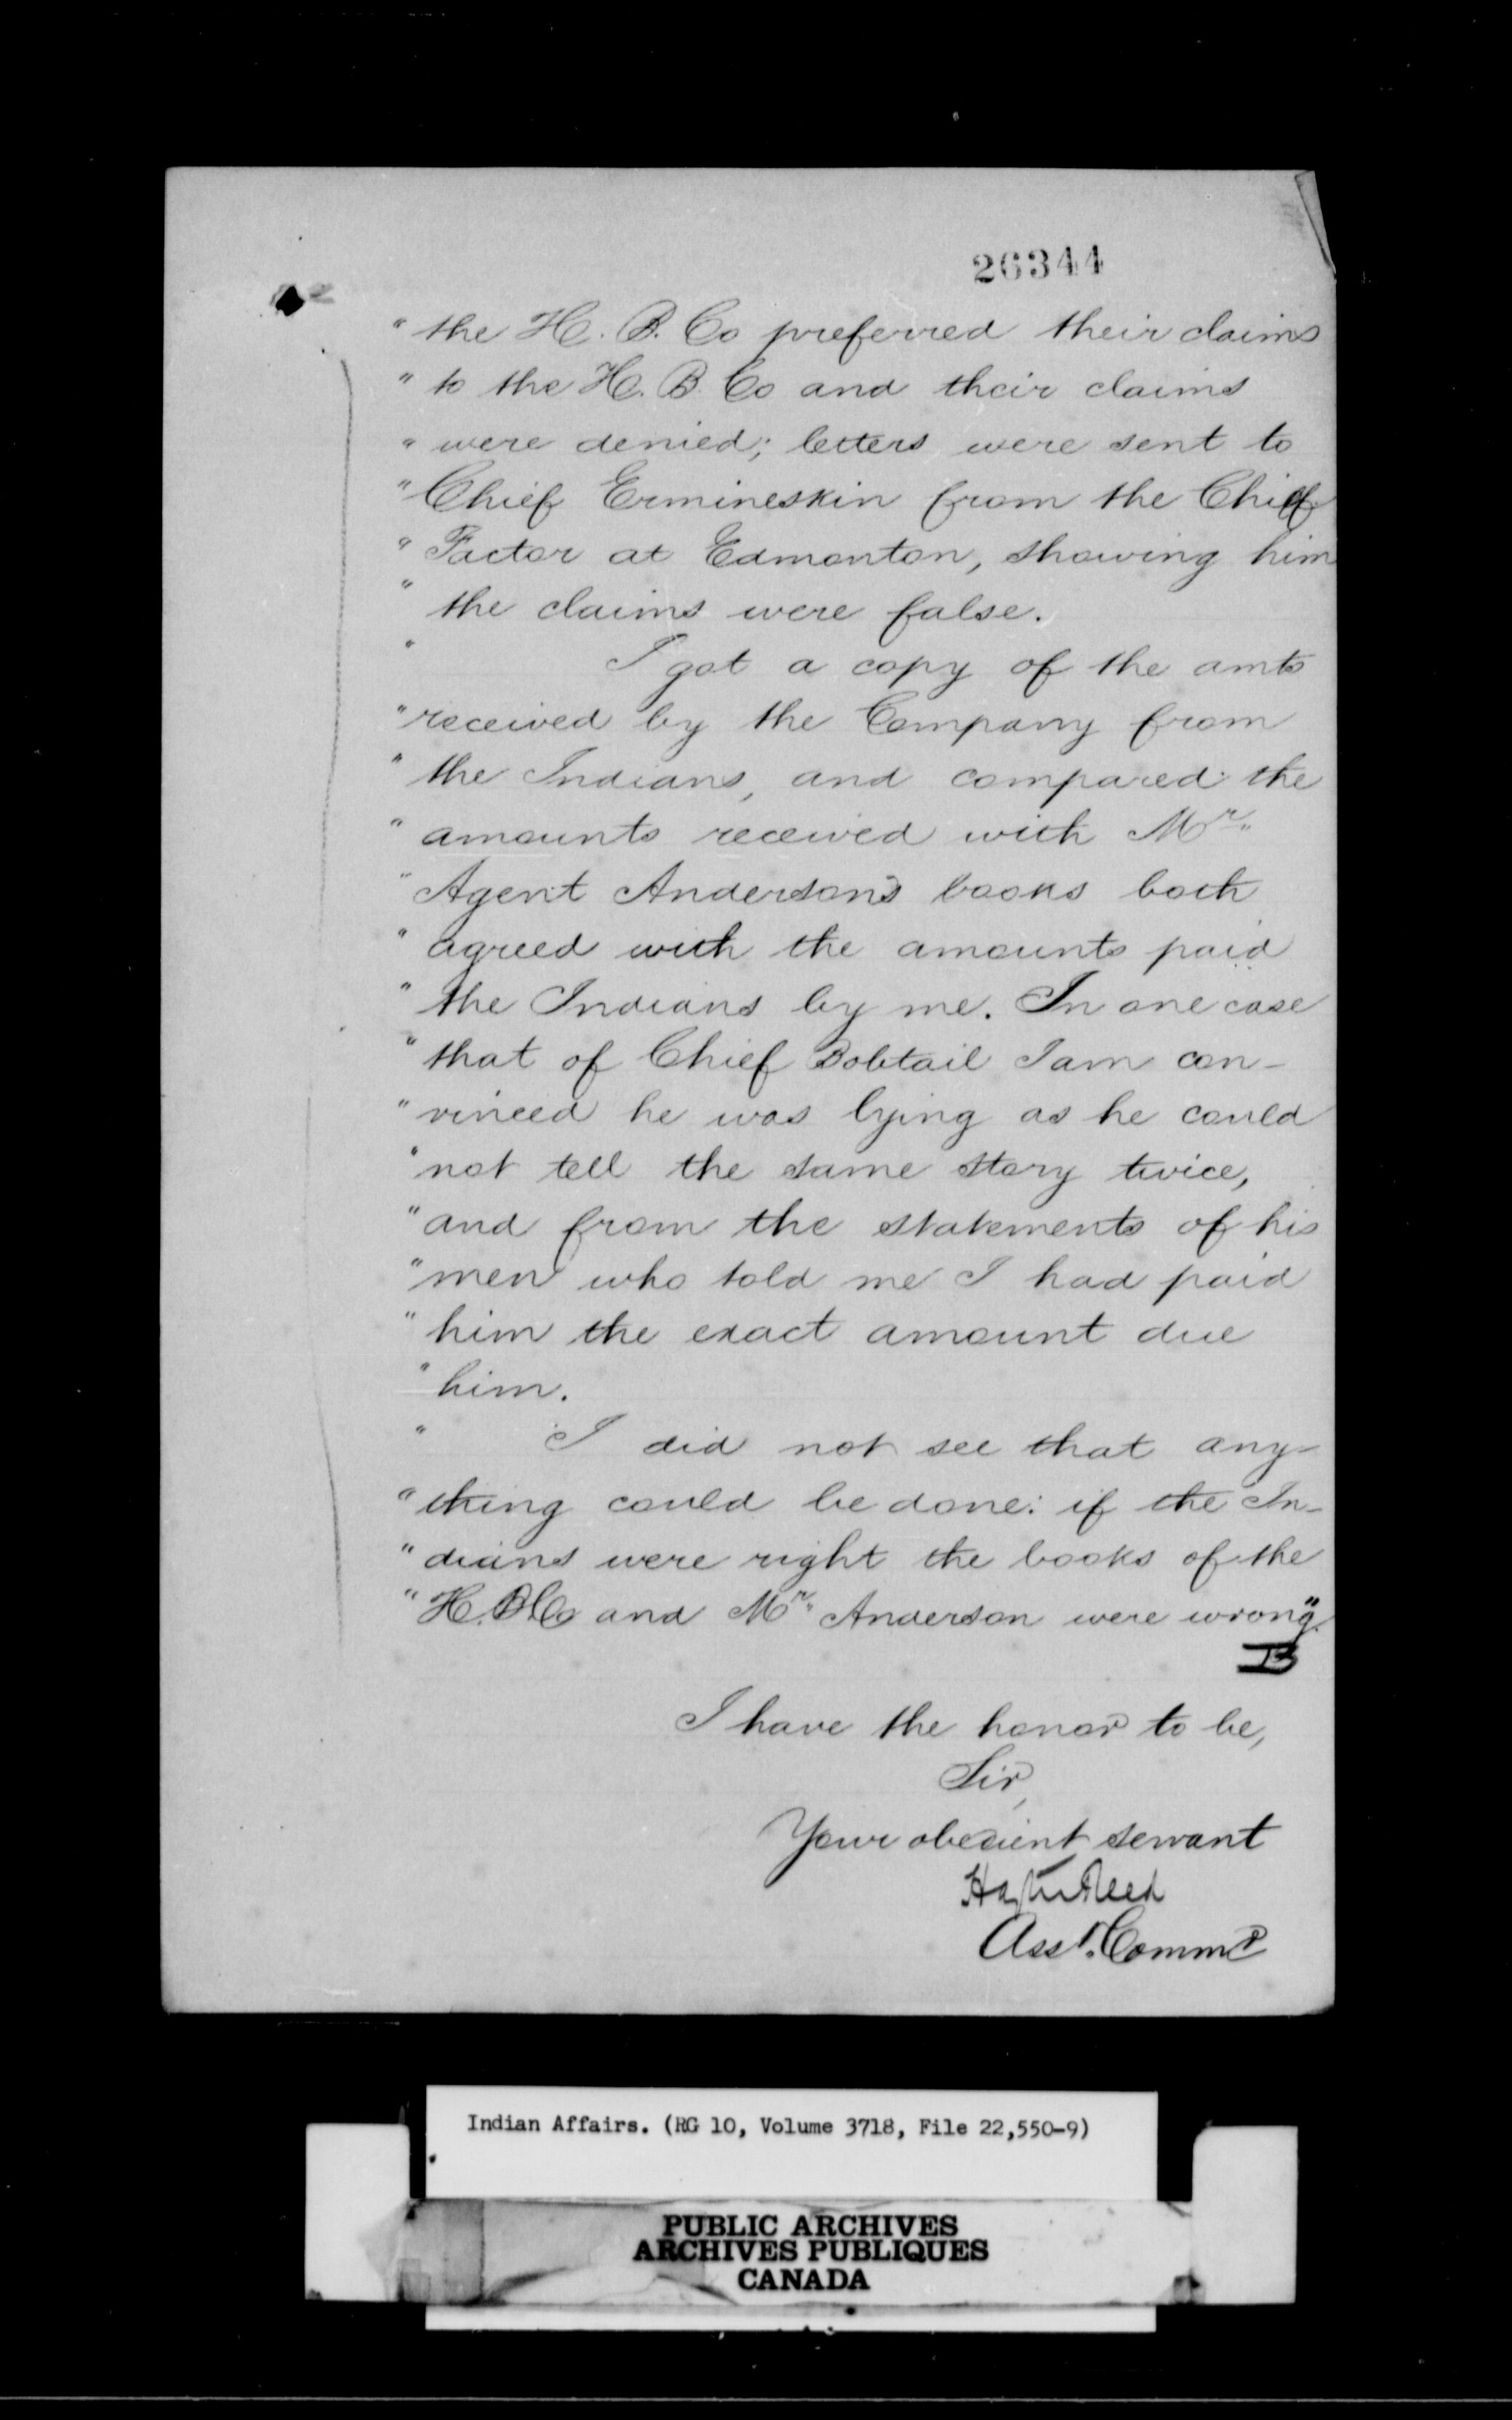 26344
" the H. B. Co preferred their claims
" to the H. B. Co and their claims
" were denied; letters were sent to
" Chief Ermineskin from the Chief
" Factor at Edmonton, showing him
" the claims were false.
" I got a copy of the amts
" received by the Company from
" the Indians, and compared the
" amounts received with Mr.
" Agent Anderson's books both
" agreed with the amounts paid
" the Indians by me. In one case
" that of Chief Bobtail I am con-
" vinced he was lying as he could
" not tell the same story twice,
" and from the statements of his
" men who told me I had paid
" him the exact amount due
" him.
" I did not see that any-
" thing could be done: if the In-
" dians were right the books of the
" H. B. Co and Mr. Anderson were wrong".
B
I have the honor to be,
Sir,
Your obedient servant
Hayter Reed
Asst. Commr
Indian Affairs. (RG 10, Volume 3718, File 22,550-9)
PUBLIC ARCHIVES
ARCHIVES PUBLIQUES
CANADA